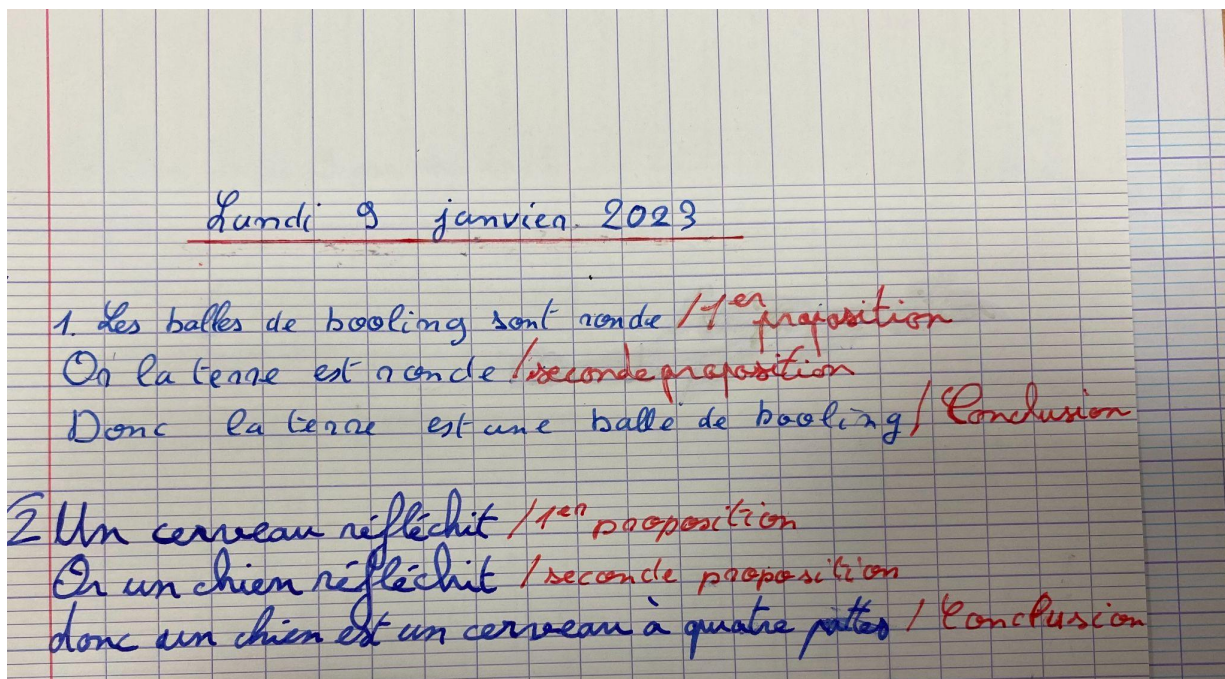 Lundi 9 janvier 2023
1. Les balles de booling sont ronde / 1er proposition
Or la terre est ronde / seconde proposition
Donc la terre est une balle de booling / Conclusion
2 Un cerveau réfléchit / 1er proposition
Or un chien réfléchit / seconde proposition
donc un chien est un cerveau à quatre pattes / Conclusion